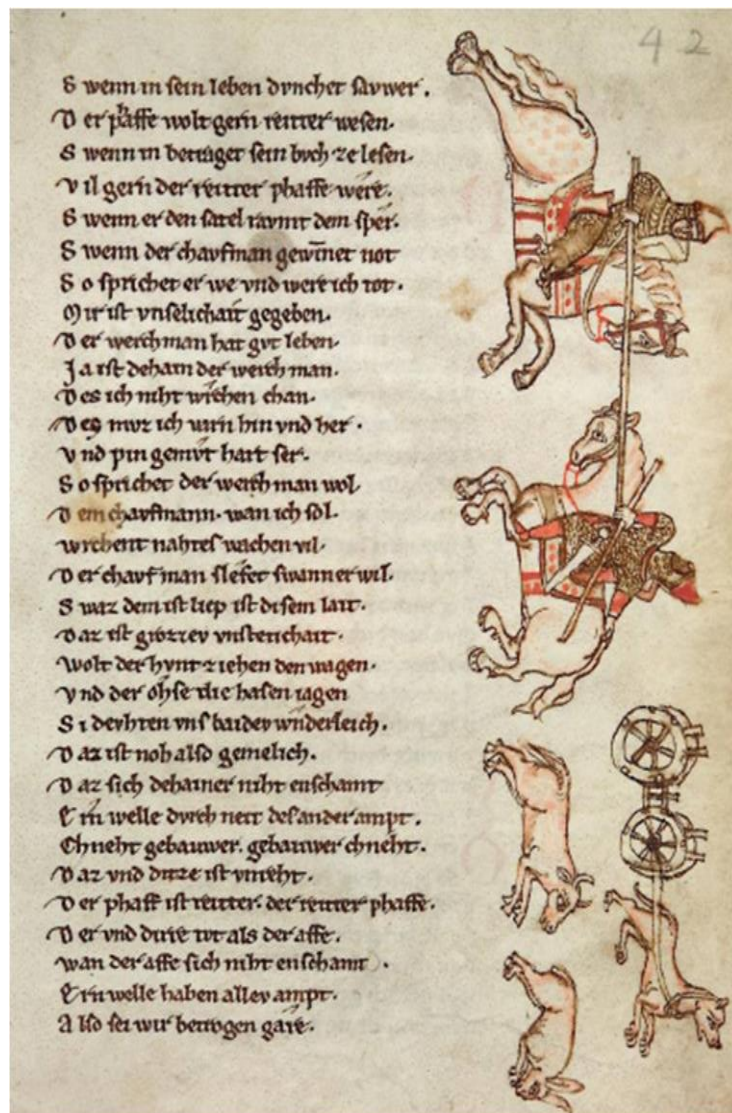 42
S wenn in sein leben dvnchet savwer.
D er phaffe wolt gern reitter wesen.
S wenn in betraget sein bvch ze lesen.
v il gern der reitter phaffe were.
S wenn er den satel ravmt dem sper.
S wenn der chavfman gewinnet not
S o sprichet er we vnd were ich tot.
M ir ist vnselichait gegeben.
D er werchman hat gvt leben.
J a ist dehain der werch man.
D es ich niht wrchen chan.
D es mvz ich varn hin vnd her.
v nd pin gemvt hart ser.
S o sprichet der werch man wol
D em chavfmann. wan ich sol.
wrchent nahtes wachen vil.
D er chavf man slefet swann er wil.
S waz dem ist liep ist disem lait.
D az ist grozzev vnstetichait.
wolt der hvnt ziehen den wagen.
v nd der ohse die hasen iagen
S i devhten vns baidev wnderleich.
D az ist noh also gemelich.
D az sich dehainer niht enschamt
E rn welle dvrch neit des ander ampt.
Chneht gebauwer. gebauwer chneht.
D az vnd ditze ist vnreht.
D er phaff ist reitter. der reitter phaffe.
D er vnd dirre tvt als der affe.
wan der affe sich niht enschamt.
E rn welle haben allev ampt.
A lso sei wir betrogen gare.